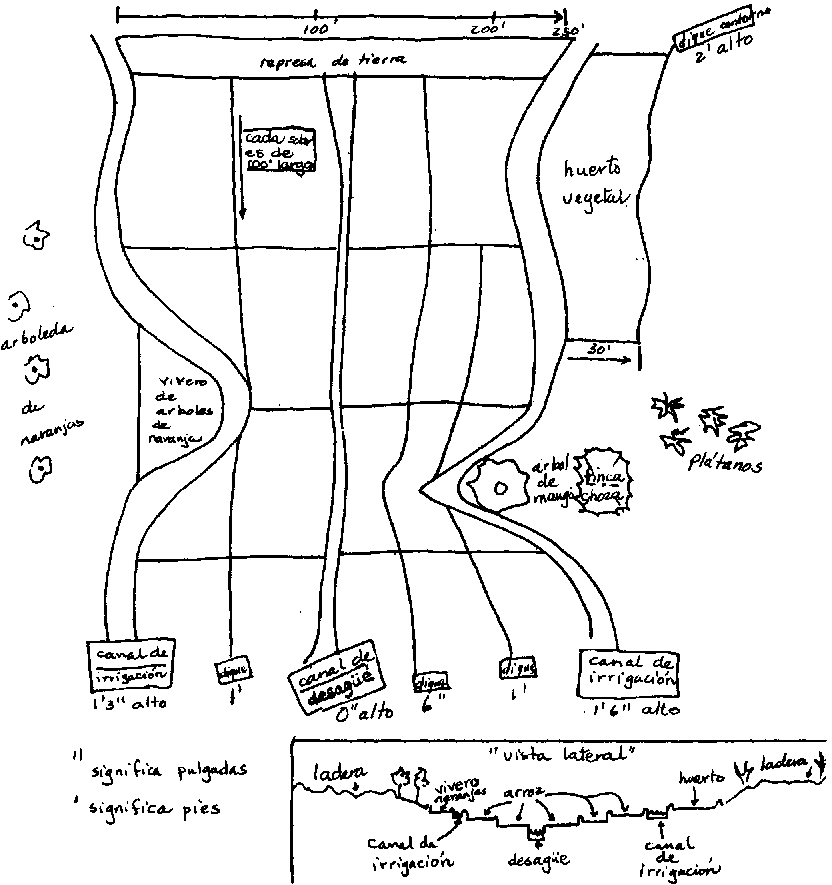 100'
200'
250'
dique contorno
2' alto
represa de tierra
cada sobre
es de
100' largo
huerto
vegetal
arboleda
de
naranjas
vivero
de
arboles
de
naranja
30'
plátanos
arbol
de
mango
finca
choza
canal de
irrigación
1'3" alto
dique
1'
canal de
desagüe
0" alto
dique
6"
dique
1'
canal de
irrigación
1'6" alto
" significa pulgadas
' significa pies
"vista lateral"
ladera
vivero
naranjas
arroz
huerto
ladera
canal de
irrigación
desagüe
canal
de
irrigación